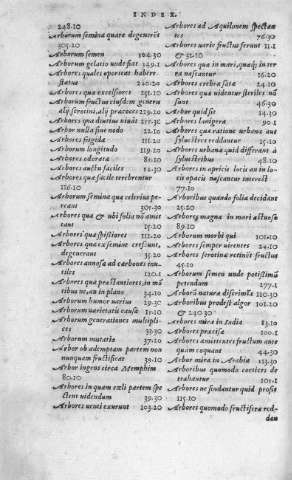 INDEX.
248.10
Arborum semina quare degenerĩt
305.20
Arborum semen 104.30
Arborum gelatio unde fiat 329.1
Arbores quales oporteat habere
statue 220.20
Arbores quæ excelsiores 251.10
Arborum fructus eiusdem generis
alij serotini, alij præcoces 229.10
Arbores qua diutius niuãt 275.30
Arbor nulla sine nodo 22.10
Arbores fragilia 111.20
Arborum longitudo 119.10
Arbores odoratæ 82.10
Arbores auctu faciles 84.30
Arbores quæ facile terebrentur
116.10
Arborum semina quæ celerius pe-
reant 301.30
Arbores qua & ubi folia nõ amit
tant 15.10
Arbores quæ spissiores 111.20
Arbores quæ ex semine cresçunt,
degenerant 35.20
Arbores annosæ ad carbones inu-
tiles 120.1
Arbores quæ præstantiores, in mõ
tibus ne, an in plano 54.10
Arborum humor uarius 29.30
Arborum uarietatis causa 31.10
Arborum generationes multipli-
ces 33.30
Arborum mutatio 37.10
Arbor ob ademptam partem non
nunquam fructificat 39.10
Arbor ingens circa Memphim
80.10
Arbores in quam cæli partem spe
ctent uidendum 39.30
Arbores ueteri exerunt 103.20
Arbores ad Aquilonem spectan
tes 76.30
Arbores uerè fructus ferunt 11.1
& 51.10
Arbores quæ in mari, quæq; in ter
ra nascantur 16.20
Arbores crebræ satæ 24.10
Arbores quæ uidentur steriles nõ
sunt 46.30
Arbor quid sit 14.30
Arbores lanigeræ 90.1
Arbores qua ratione urbanæ aut
syluestres reddantur 25.10
Arbores urbanæ quid differant à
syluestribus 48.10
Arbores in apricis locis an in lo
cis opacis nascantur interest
77.20
Arboribus quando folia decidant
25.20
Arbores magnæ in mari actuoso
89.10
Arborum morbi qui 102.10
Arbores semper uirentes 24.10
Arbores serotinæ uetinæ fructus
45.10
Arborum semen unde potissimũ
petendum 277.1
Arborũ natura discrimina 110.30
Arboribus prodest algor 101.10
& 240.30
Arbores miræ in India 83.10
Arbores præcisæ 100.1
Arbores amittentes fructum ante
quam coquant 44.30
Arbor mira in Arabia 153.30
Arboribus quomodo cortices de
trahantur 101.1
Arbores ne findantur quid prosit
115.10
Arbores quomodo fructiferæ red-
dan